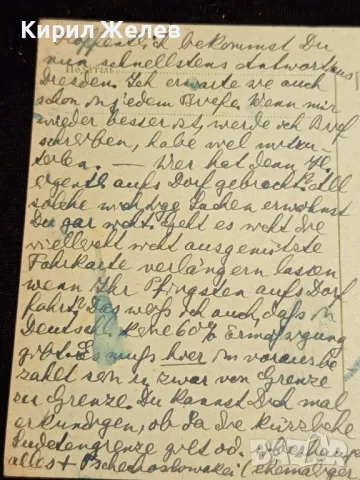 Кирил Желев
Hoffentlich bekommst Du
nun schnellstens Antwort aus
Dresden. Ich erwarte sie auch
schon in jedem Briefe. Wenn mir
wieder besser ist, werde ich Brief
schreiben, habe viel mitzu-
teilen. — Wer hat denn
eigentl. aufs Dorf gebracht? All
solche wichtige Sachen erwähnst
Du gar nicht. Geht es nicht die
vielleicht nicht ausgenützte
Fahrkarte verlängern lassen
wenn Ihr Pfingsten aufs Dorf
fahrt? Das weiß ich auch, daß in
Deutschl. keine 60% Ermäßigung
gibt. Es muß hier im voraus be
zahlt sein u. zwar von Grenze
zu Grenze. Du kannst Dich mal
erkundigen, ob da die kürzliche
Sudetengrenze gilt od. überhaupt
alles + Tschechoslowakei (ehemaliger
bazar